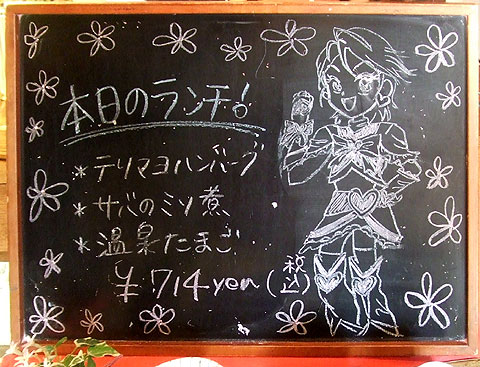 本日のランチ!
*テリマヨハンバーグ
*サバのミソ煮
*温泉たまご
¥714yen(税込)